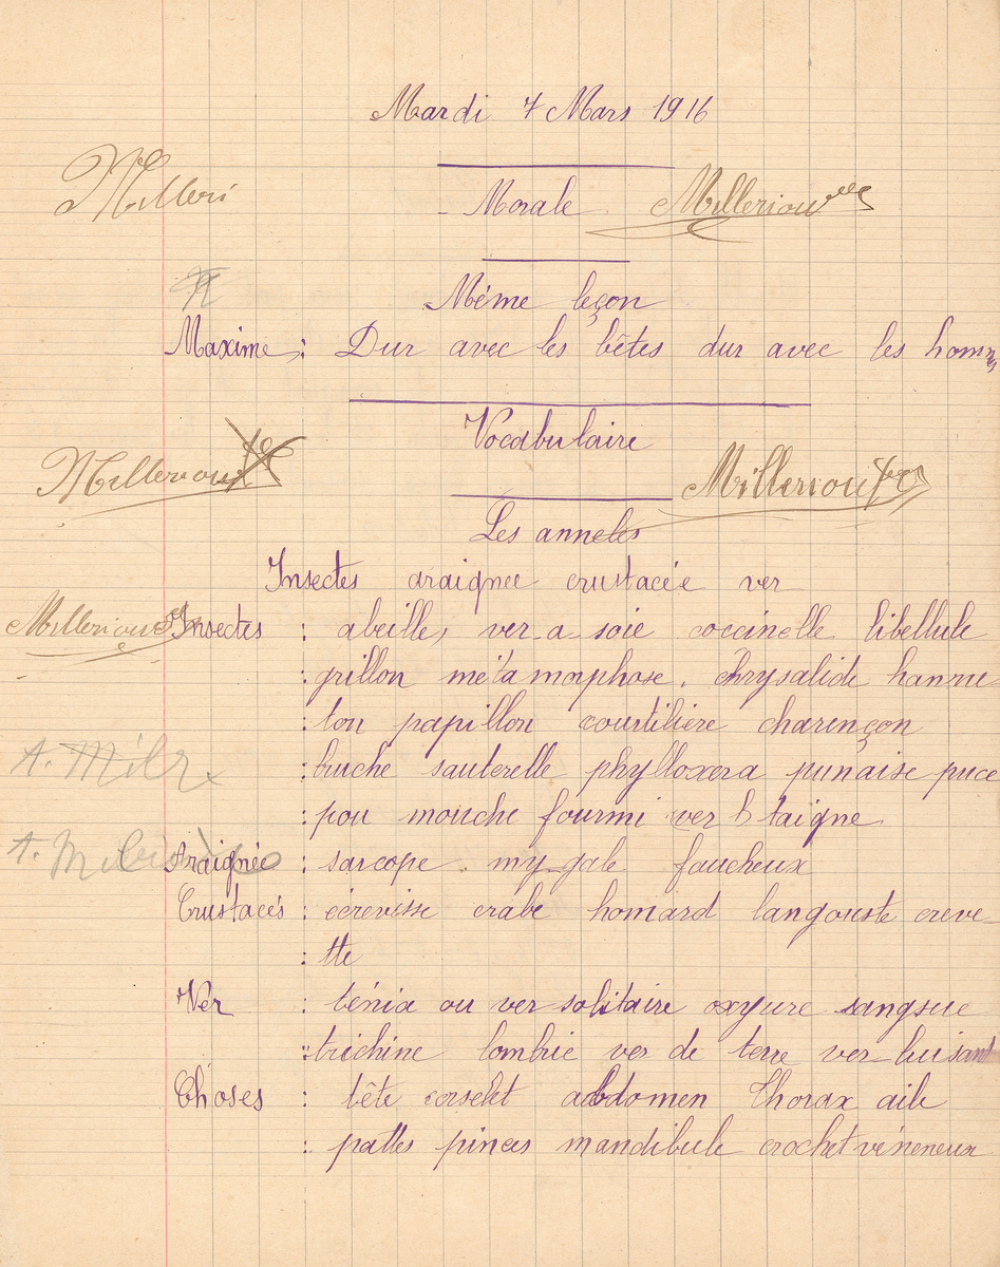 Mardi 7 Mars 1916
Milleri
Morale Millerioux
Même leçon
Maxime : Dur avec les bêtes dur avec les homm
Vocabulaire
Millerioux
Millerioux
Les annelés
Insectes araignée crustacée ver
Millerioux
Insectes : abeilles, ver à soie coccinelle libellule
: grillon métamorphose. chrysalide hanne-
: ton papillon courtilière charençon
A. Milr
: bruche sauterelle phylloxera punaise puce
: pou mouche fourmi ver taigne
A.
Araignée : sarcope. mygale faucheux
Crustacés : écrevisse crabe homard langouste creve-
: tte
Ver : ténia ou ver solitaire oxyure sangsue
: trichine lombric ver de terre ver-luisant
Choses : tête corselet abdomen thorax aile
: pattes pinces mandibule crochet véneneux